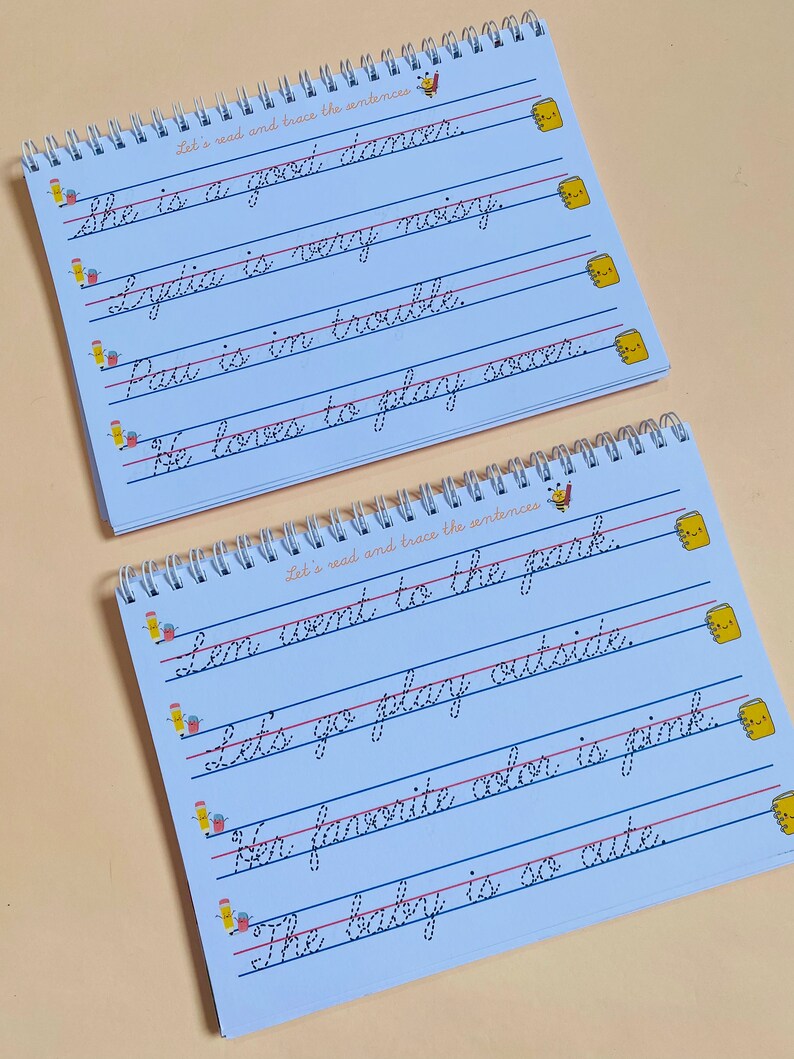 Let's read and trace the sentences
She is a good dancer.
Lydia is very noisy.
Pau is in trouble.
He loves to play soccer.
Let's read and trace the sentences
Len went to the park.
Let's go play outside.
Her favorite color is pink.
The baby is so cute.